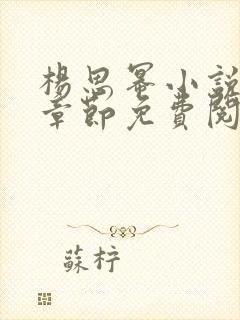 楊思冪小說
章節免費閱
蘇梓